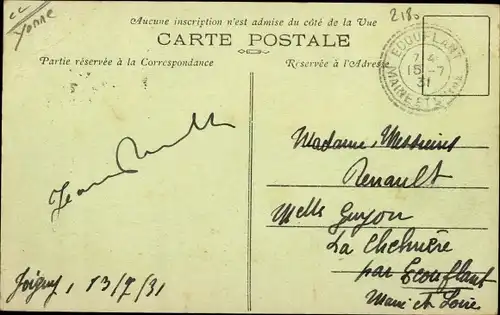 cc
Yonne
2180
Aucune inscription n'est admise du côté de la Vue
CARTE POSTALE
Partie réservée à la Correspondance
Réservée à l'Adresse
ECOUFLANT
7 4
15 -7
31
MAINE ET LOIRE
Madame, Messieurs
Renault
Melle Guyon
La Chenière
par Ecouflant
Maine et Loire
Jean
Joigny, 13/7/31